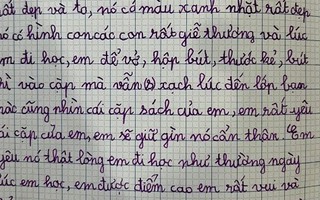 rất đẹp và to, nó có màu xanh nhạt rất đẹp
nó có hình con các con rất giễ thương và lúc
em đi học, em để vở, hộp bút, thước kẻ, bút
chì vào cặp mà vẫn xach lúc đến lớp bạn
khác cũng nhìn cái cặp sách của em, em rất yêu
cái cặp của em, em sẽ giữ gìn nó cẩn thận. Em
yêu nó thật lòng em đi học như thường ngày
lúc em học, em được điểm cao em rất vui và